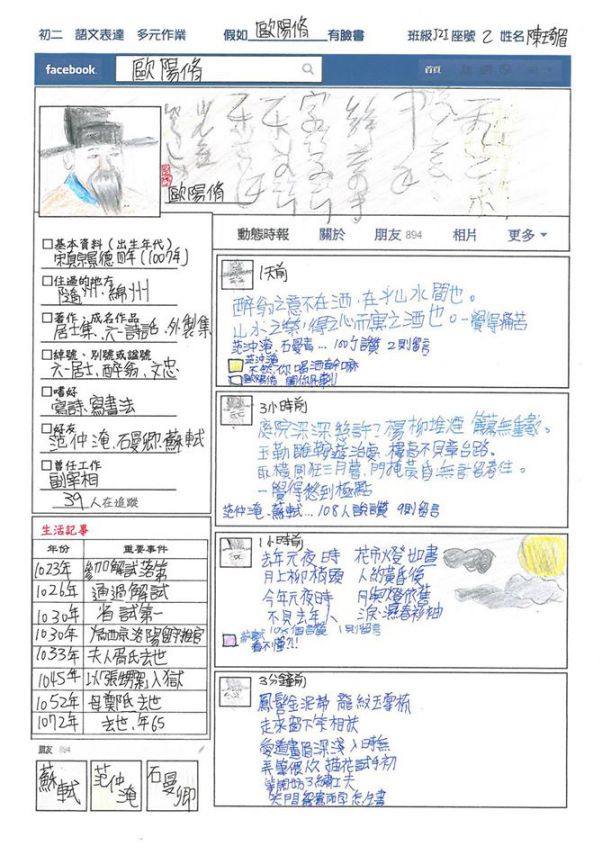 初二 語文表達 多元作業 假如 歐陽脩 有臉書 班級 J2I 座號 2 姓名 陳
facebook 歐陽脩 首頁
歐陽脩
動態時報 關於 朋友 894 相片 更多
□基本資料(出生年代)
宋真宗景德四年(1007年)
□住過的地方
隨州、綿州
□著作、成名作品
居士集、六一詩話、外製集
□綽號、別號或諡號
六一居士、醉翁、文忠
□嗜好
寫詩、寫書法
□好友
范仲淹、石曼卿、蘇軾
□曾任工作
副宰相
39 人在追蹤
生活記事
年份 重要事件
1023年 參加解試落第
1026年 通過解試
1030年 省試第一
1030年 為西京洛陽留守推官
1033年 夫人胥氏去世
1045年 以「張甥案」入獄
1052年 母鄭氏去世
1072年 去世,年65
朋友 894
蘇軾
范仲淹
石曼卿
1天前
醉翁之意不在酒,在乎山水間也。
山水之樂,得之心而寓之酒也。-覺得痛苦
范仲淹、石曼卿...100個讚 2則留言
范仲淹
不然你喝酒幹嘛
歐陽脩
3小時前
庭院深深深幾許?楊柳堆煙 簾幕無重數。
玉勒雕鞍遊治處,樓高不見章台路。
雨橫風狂三月暮,門掩黃昏,無計留春住。
-覺得愁到極點
范仲淹、蘇軾...108人說讚 9則留言
1小時前
去年元夜時 花市燈如晝
月上柳梢頭 人約黃昏後
今年元夜時 月與燈依舊
不見去年人 淚濕春衫袖
蘇軾 個讚 1則留言
看不懂?!!
3分鐘前
鳳髻金泥帶 龍紋玉掌梳
走來窗下笑相扶
愛道畫眉深淺入時無
弄筆偎人久 描花試手初
等閒妨了繡工夫
笑問鴛鴦兩字怎生書